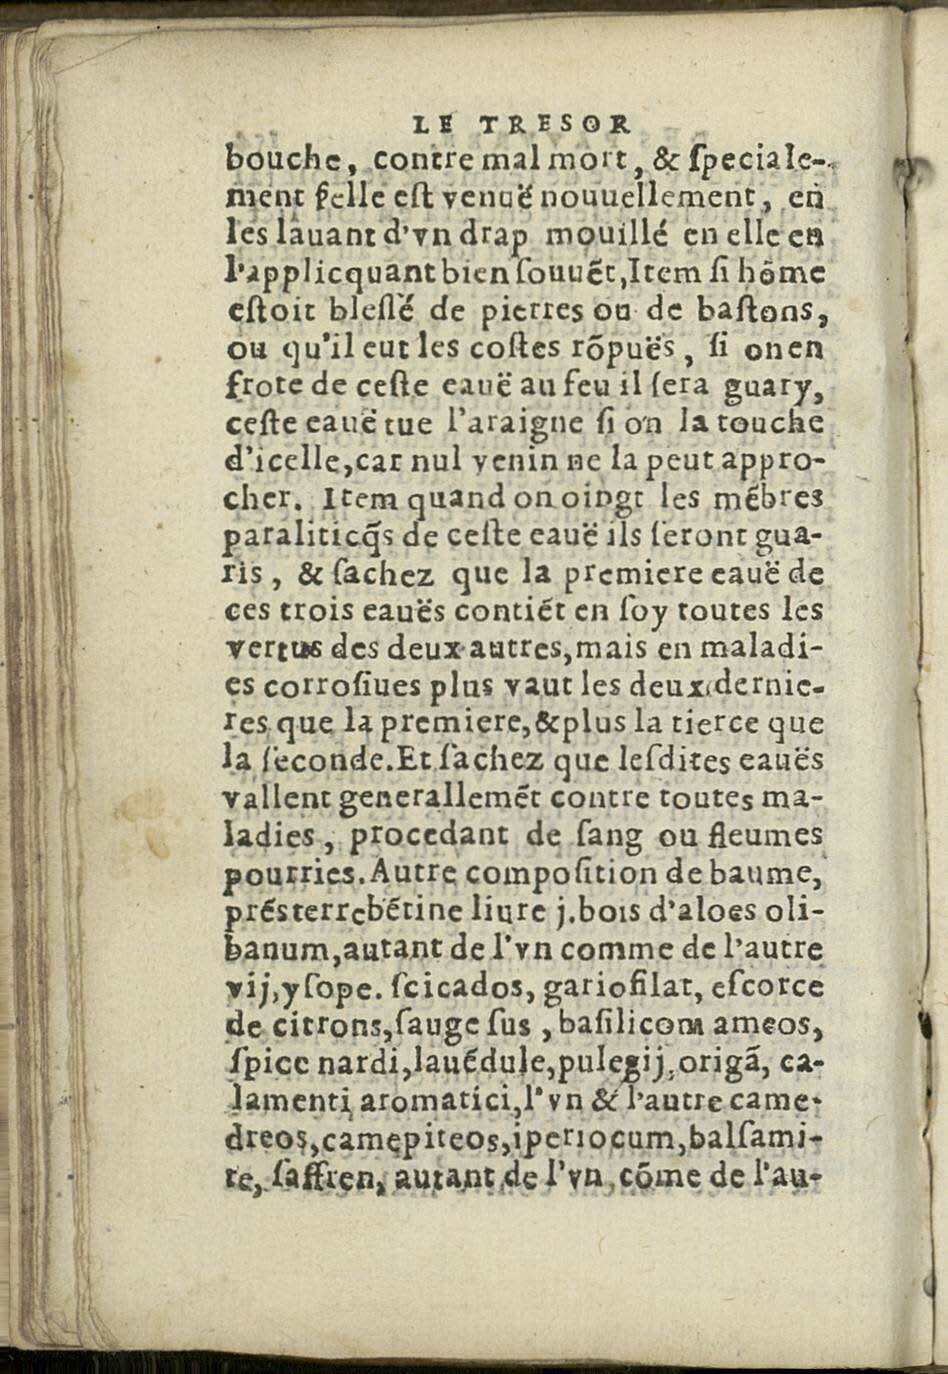 LE TRESOR
bouche, contre mal mort, & ſpeciale-
ment ſelle eſt venuë nouuellement, en
les lauant d'vn drap mouillé en elle en
l'applicquant bien ſouuēt, Item ſi hōme
eſtoit bleſſé de pierres ou de baſtons,
ou qu'il eut les coſtes rōpuës, ſi on en
frote de ceſte eauë au feu il ſera guary,
ceſte eauë tue l'araigne ſi on la touche
d'icelle, car nul venin ne la peut appro-
cher. Item quand on oingt les mēbres
paraliticq̃s de ceſte eauë ils ſeront gua-
ris, & ſachez que la premiere eauë de
ces trois eauës contiēt en ſoy toutes les
vertus des deux autres, mais en maladi-
es corroſiues plus vaut les deux dernie-
res que la premiere, & plus la tierce que
la ſeconde. Et ſachez que leſdites eauës
vallent generallemēt contre toutes ma-
ladies, procedant de ſang ou fleumes
pourries. Autre compoſition de baume,
prés terrebētine liure j. bois d'aloes oli-
banum, autant de l'vn comme de l'autre
vij, yſope. ſcicados, gariofilat, eſcorce
de citrons, ſauge ſus, baſilicom ameos,
ſpice nardi, lauēdule, pulegij, origā, ca-
lamenti aromatici, l'vn & l'autre came-
dreos, camepiteos, iperiocum, balſami-
te, ſaffren, autant de l'vn cōme de l'au-